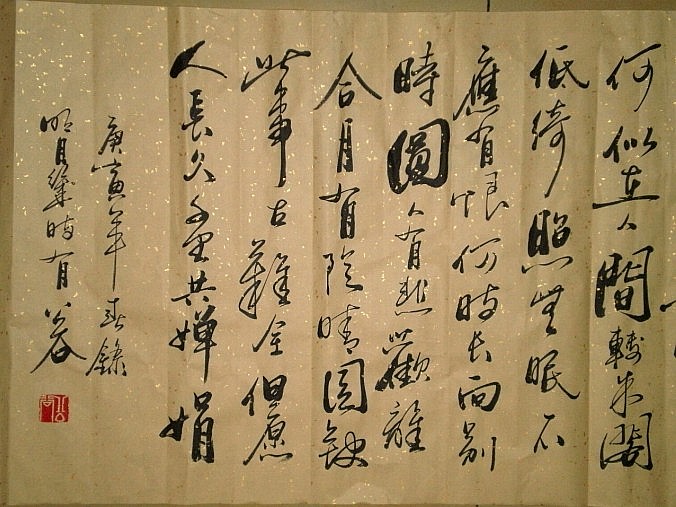 何似在人間轉朱閣
低綺照無眠不
應有恨何時长向别
時圓人有悲歡離
合月有陰晴圆缺
此事古難全但愿
人長久千里共嬋娟
庚寅年春錄
明月幾時有